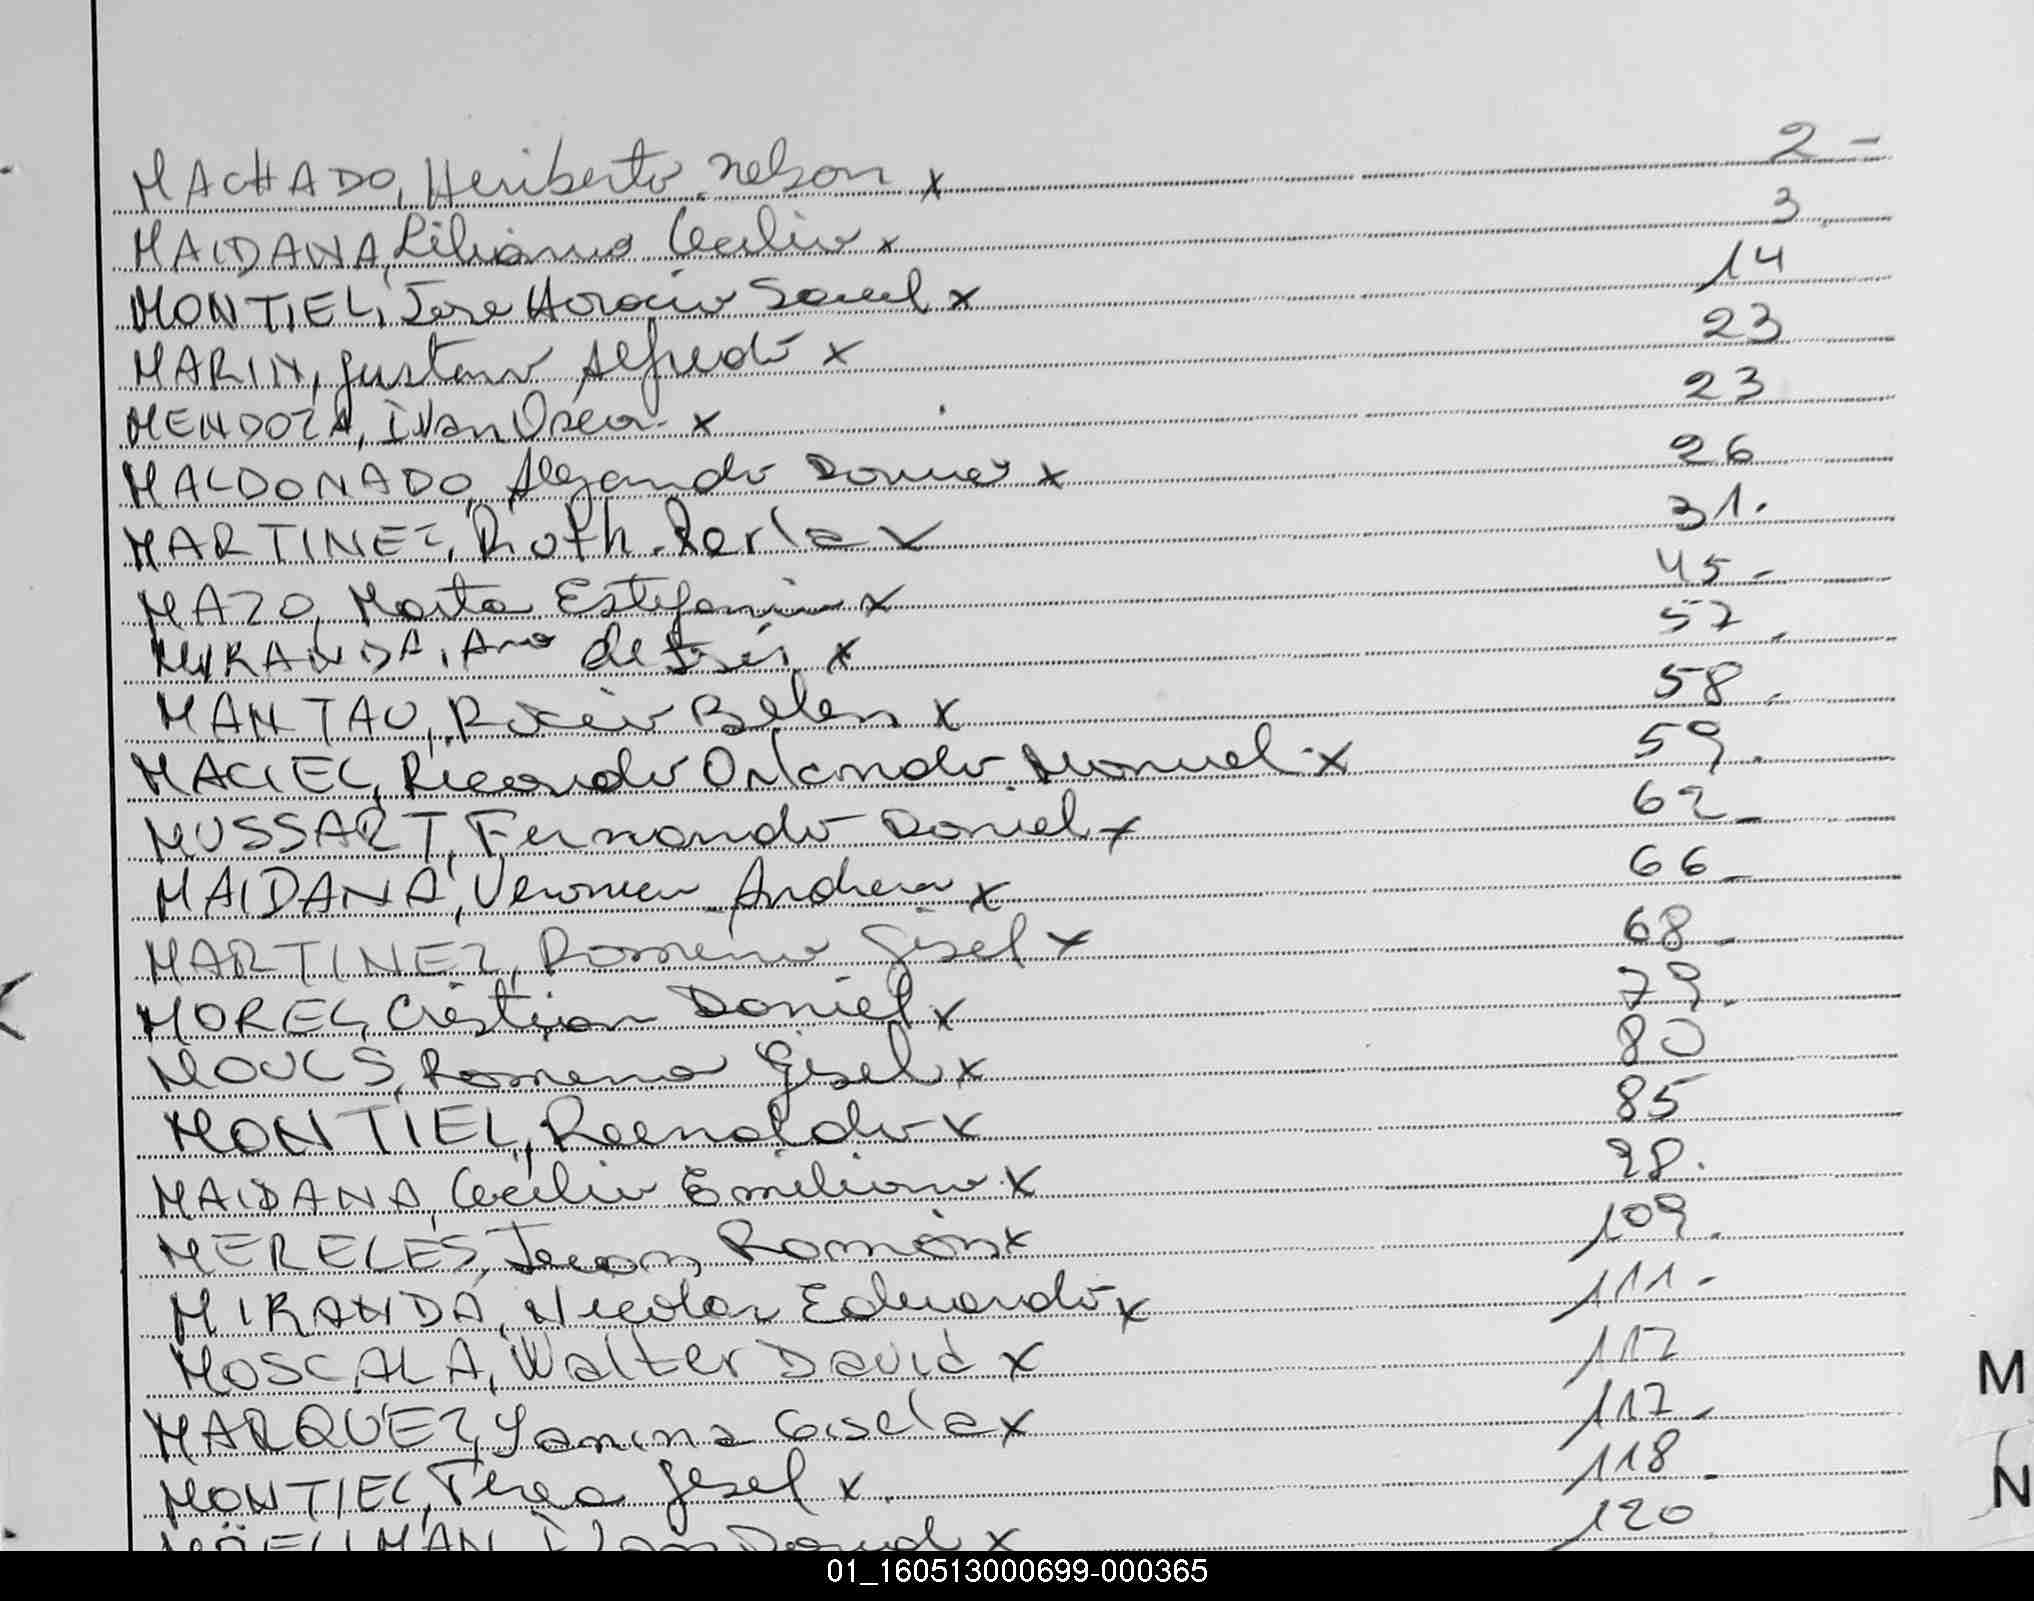 MACHADO, Heriberto Nelson x 2 -
MAIDANA, Liliana Cecilia x 3
MONTIEL, Jose Horacio Samuel x 14
MARIN, Gustavo Alfredo x 23
MENDOZA, Ivan Oscar x 23
MALDONADO, Alejandro x 26
MARTINEZ, Ruth Perla x 31.
MAZO, Marta Estefania x 45 -
MIRANDA, Ana de x 57
MANTAU, Rocio Belen x 58.
MACIEL, Ricardo Orlando Manuel x 59.
MUSSART, Fernando Daniel x 62 -
MAIDANA, Veronica Andrea x 66 -
MARTINEZ, Romena Gisel x 68 -
MOREL, Cristian Daniel x 79.
Romena Gisel x 80
MONTIEL, Reenaldo x 85
MAIDANA, Cecilia Emiliana x 98.
MERELES, Juan Ramón x 109.
MIRANDA, Nicolas Eduardo x 111 -
MOSCALA, Walter David x 117
MARQUEZ, Yanina Gisela x 117 -
MONTIEL, Gisel x 118 -
Ivan David x 120
M
N
01_160513000699-000365